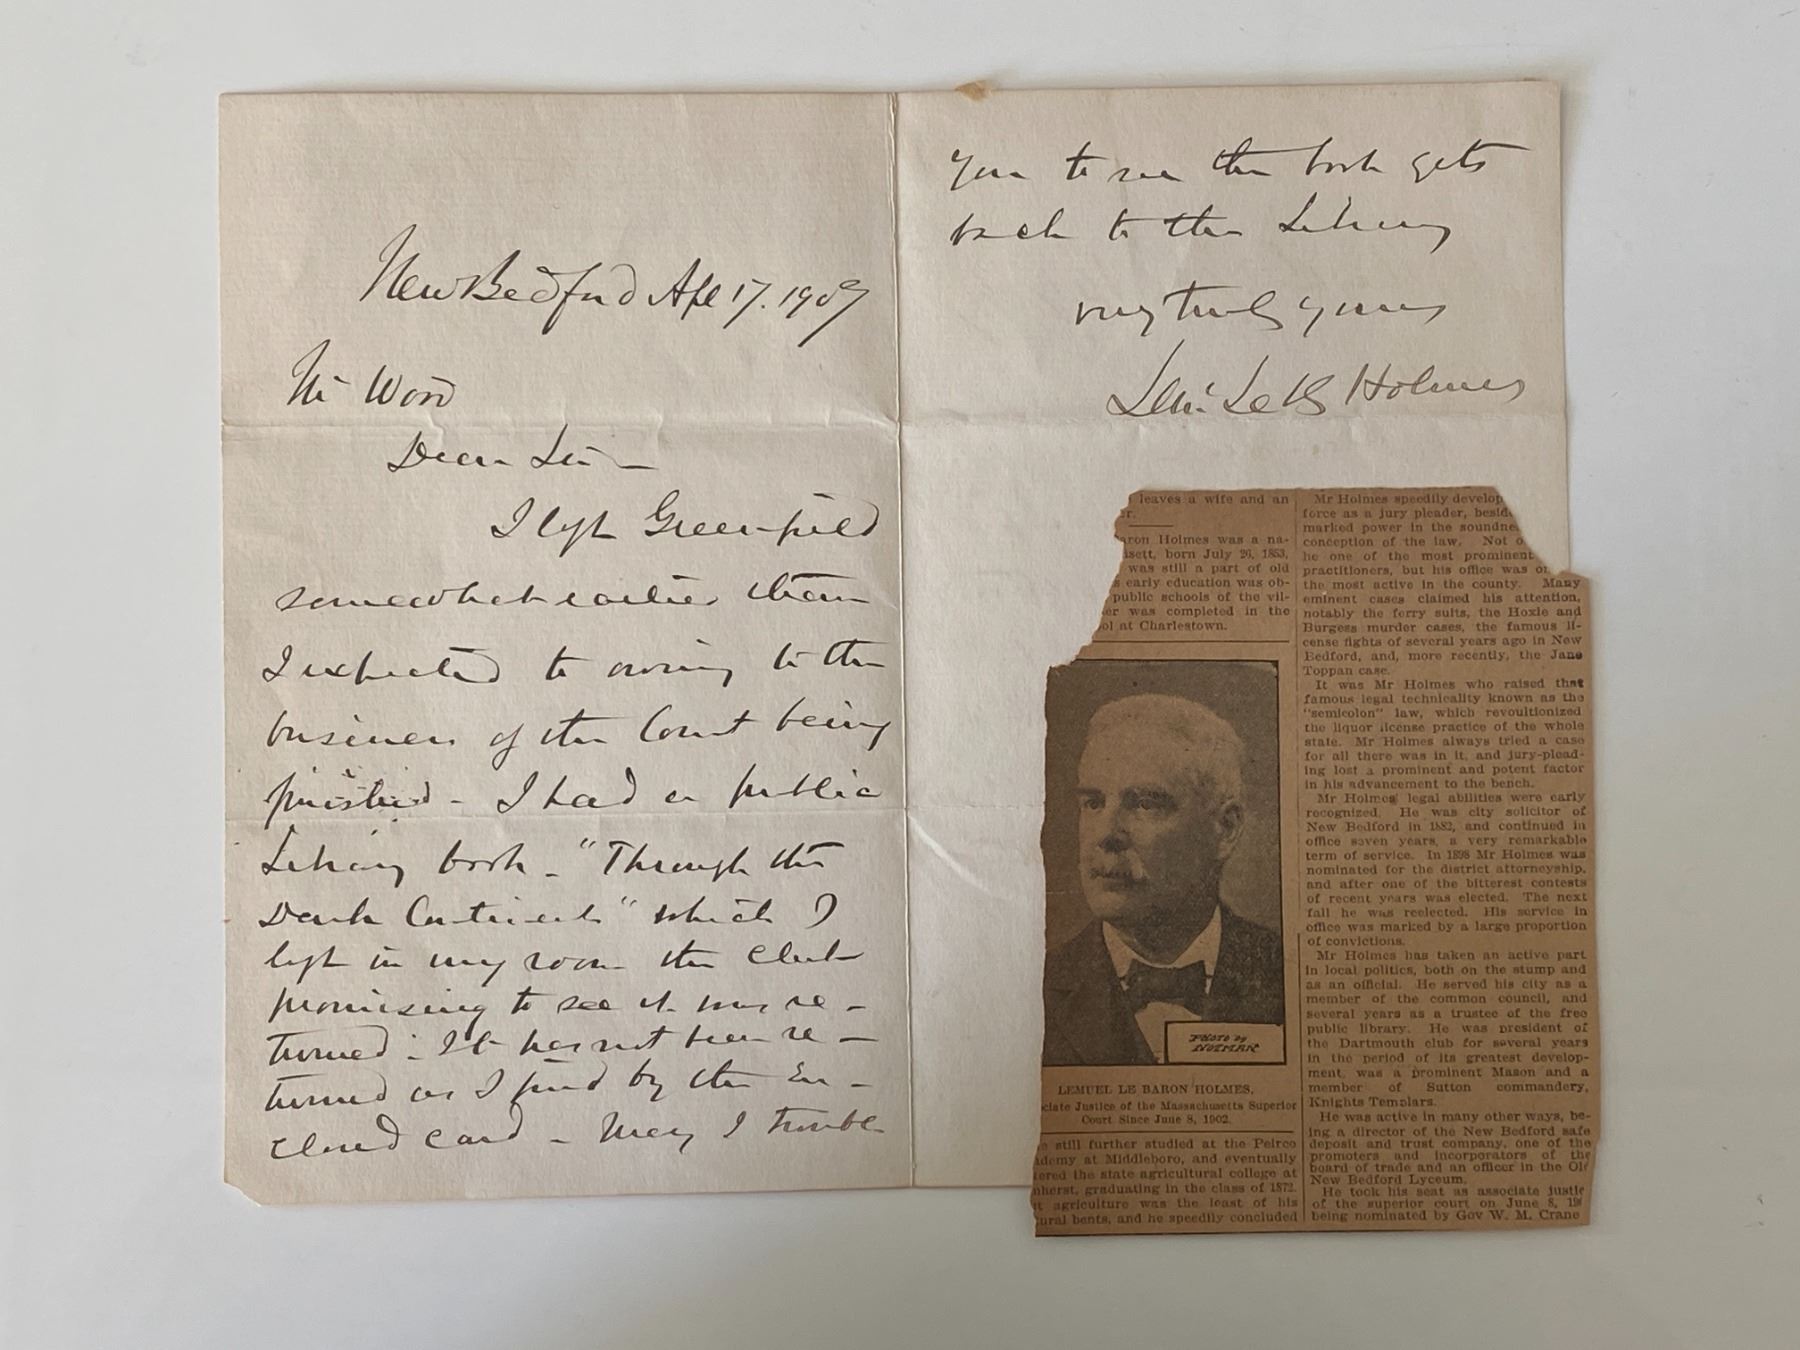 New Bedford Apl 17. 1907
Mr Wood
Dear Sir —
I left Greenfield
somewhat earlier than
I expected to owing to the
business of the Court being
finished - I had a public
Library book - "Through the
Dark Continent" which I
left in my room the club
promising to see it was re -
turned - It has not been re -
turned as I find by the En -
closed card - May I trouble
you to see the book gets
back to the Library
very truly yours
Le B Holmes
leaves a wife and an
r.
aron Holmes was a na-
isett, born July 26, 1853,
was still a part of old
s early education was ob-
public schools of the vil-
er was completed in the
ol at Charlestown.
PHOTO by
NOTMAN
LEMUEL LE BARON HOLMES,
ciate Justice of the Massachusetts Superior
Court Since June 8, 1902.
e still further studied at the Peirce
ademy at Middleboro, and eventually
tered the state agricultural college at
mherst, graduating in the class of 1872.
t agriculture was the least of his
ural bents, and he speedily concluded
Mr Holmes speedily develop
force as a jury pleader, besid
marked power in the soundne
conception of the law. Not o
he one of the most prominent
practitioners, but his office was o
the most active in the county. Many
eminent cases claimed his attention,
notably the ferry suits, the Hoxie and
Burgess murder cases, the famous li-
cense fights of several years ago in New
Bedford, and, more recently, the Jane
Toppan case.
It was Mr Holmes who raised that
famous legal technicality known as the
"semicolon" law, which revoultionized
the liquor license practice of the whole
state. Mr Holmes always tried a case
for all there was in it, and jury-plead-
ing lost a prominent and potent factor
in his advancement to the bench.
Mr Holmes' legal abilities were early
recognized. He was city solicitor of
New Bedford in 1882, and continued in
office seven years, a very remarkable
term of service. In 1898 Mr Holmes was
nominated for the district attorneyship,
and after one of the bitterest contests
of recent years was elected. The next
fall he was reelected. His service in
office was marked by a large proportion
of convictions.
Mr Holmes has taken an active part
in local politics, both on the stump and
as an official. He served his city as a
member of the common council, and
several years as a trustee of the free
public library. He was president of
the Dartmouth club for several years
in the period of its greatest develop-
ment, was a prominent Mason and a
member of Sutton commandery,
Knights Templars.
He was active in many other ways, be-
ing a director of the New Bedford safe
deposit and trust company, one of the
promoters and incorporators of the
board of trade and an officer in the Ol
New Bedford Lyceum.
He took his seat as associate justic
of the superior court on June 8, 19
being nominated by Gov W. M. Crane